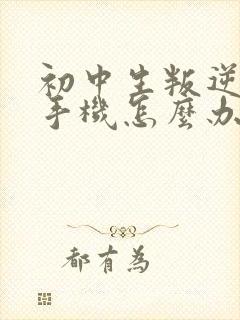 初中生叛逆
手機怎麼办
都有為